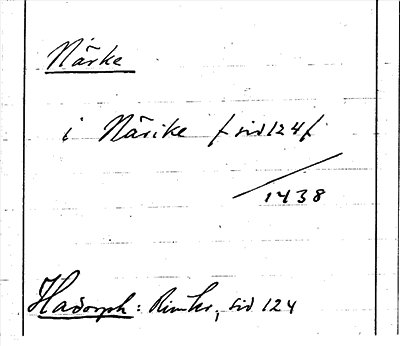 Närke
i Närike / sid 124 /
1438
Hadorph: Rimkr, sid 124